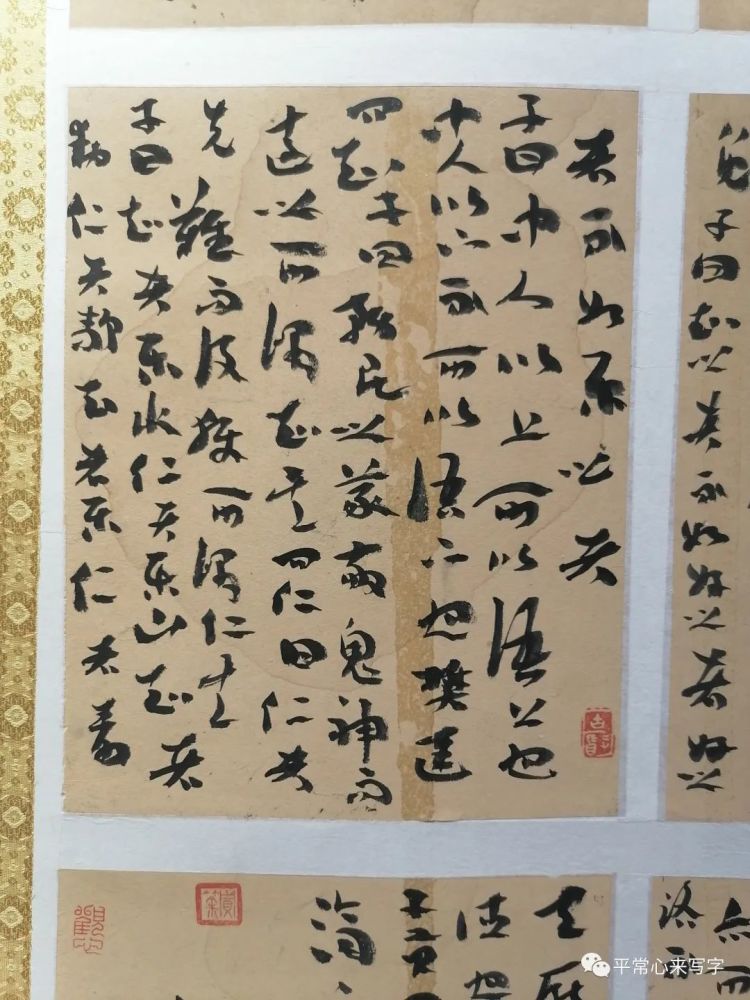 免子曰知之者不如好之者好之
者不如樂之者
子曰中人以上可以語上也
中人以下不可以語上也樊遲
問知子曰務民之義敬鬼神而
遠之可謂知矣問仁曰仁者
先難而後獲可謂仁矣
子曰知者樂水仁者樂山知者
動仁者靜知者樂仁者壽
平常心来写字